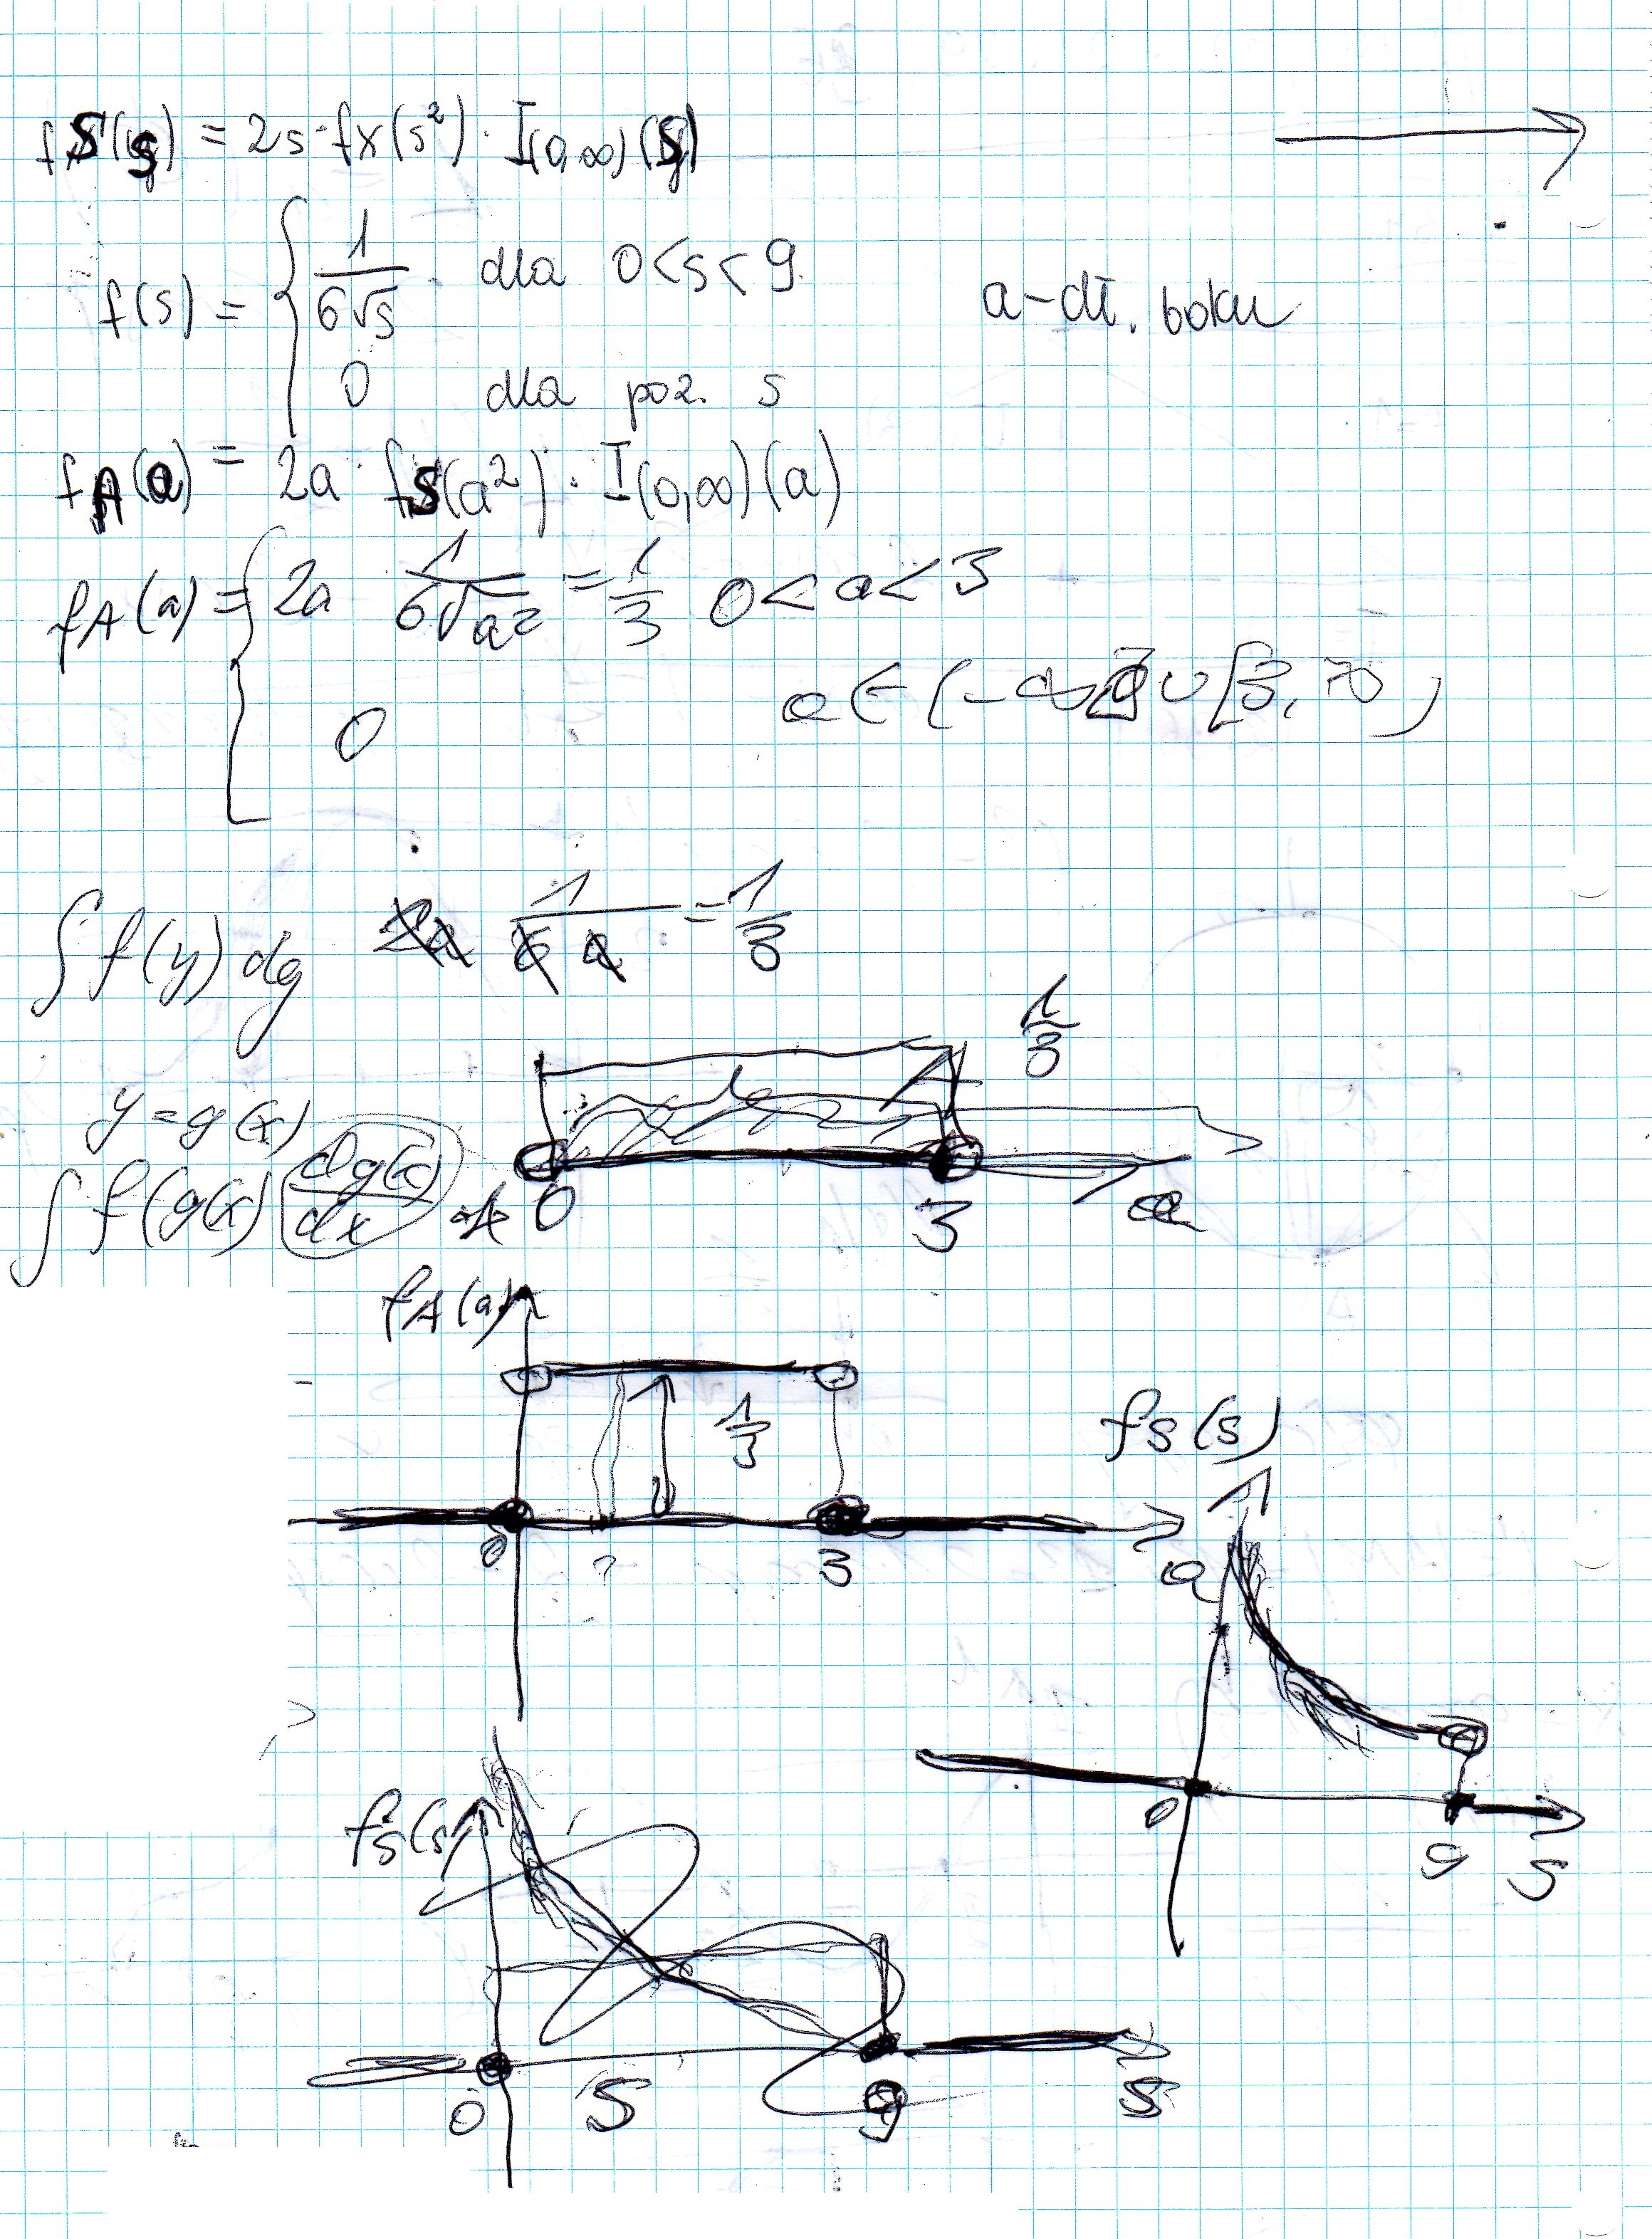 fS(s) = 2s · fx(s²) · I(0,∞)(s)
f(s) = { 1/(6√s) dla 0<s<9
0 dla poz. s
a - dł. boku
fA(a) = 2a · fS(a²) · I(0,∞)(a)
fA(a) = { 2a 1/(6√a²) = 1/3 0<a<3
0 a∈(-∞,0]∪[3,∞)
∫f(y)dy 2a 1/(6 a) = 1/3
1/3
y=g(x)
∫f(g(x) dg(x)/dx
0 3 a
fA(a)
1/3
0 ? 3 a
fS(s)
0 9 s
fS(s)
0 5 9 s